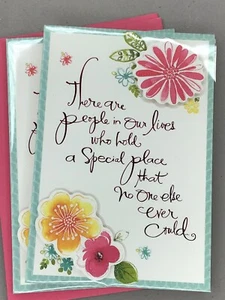 There are
people in our lives
who hold
a Special place
that
No One else
ever
Could.